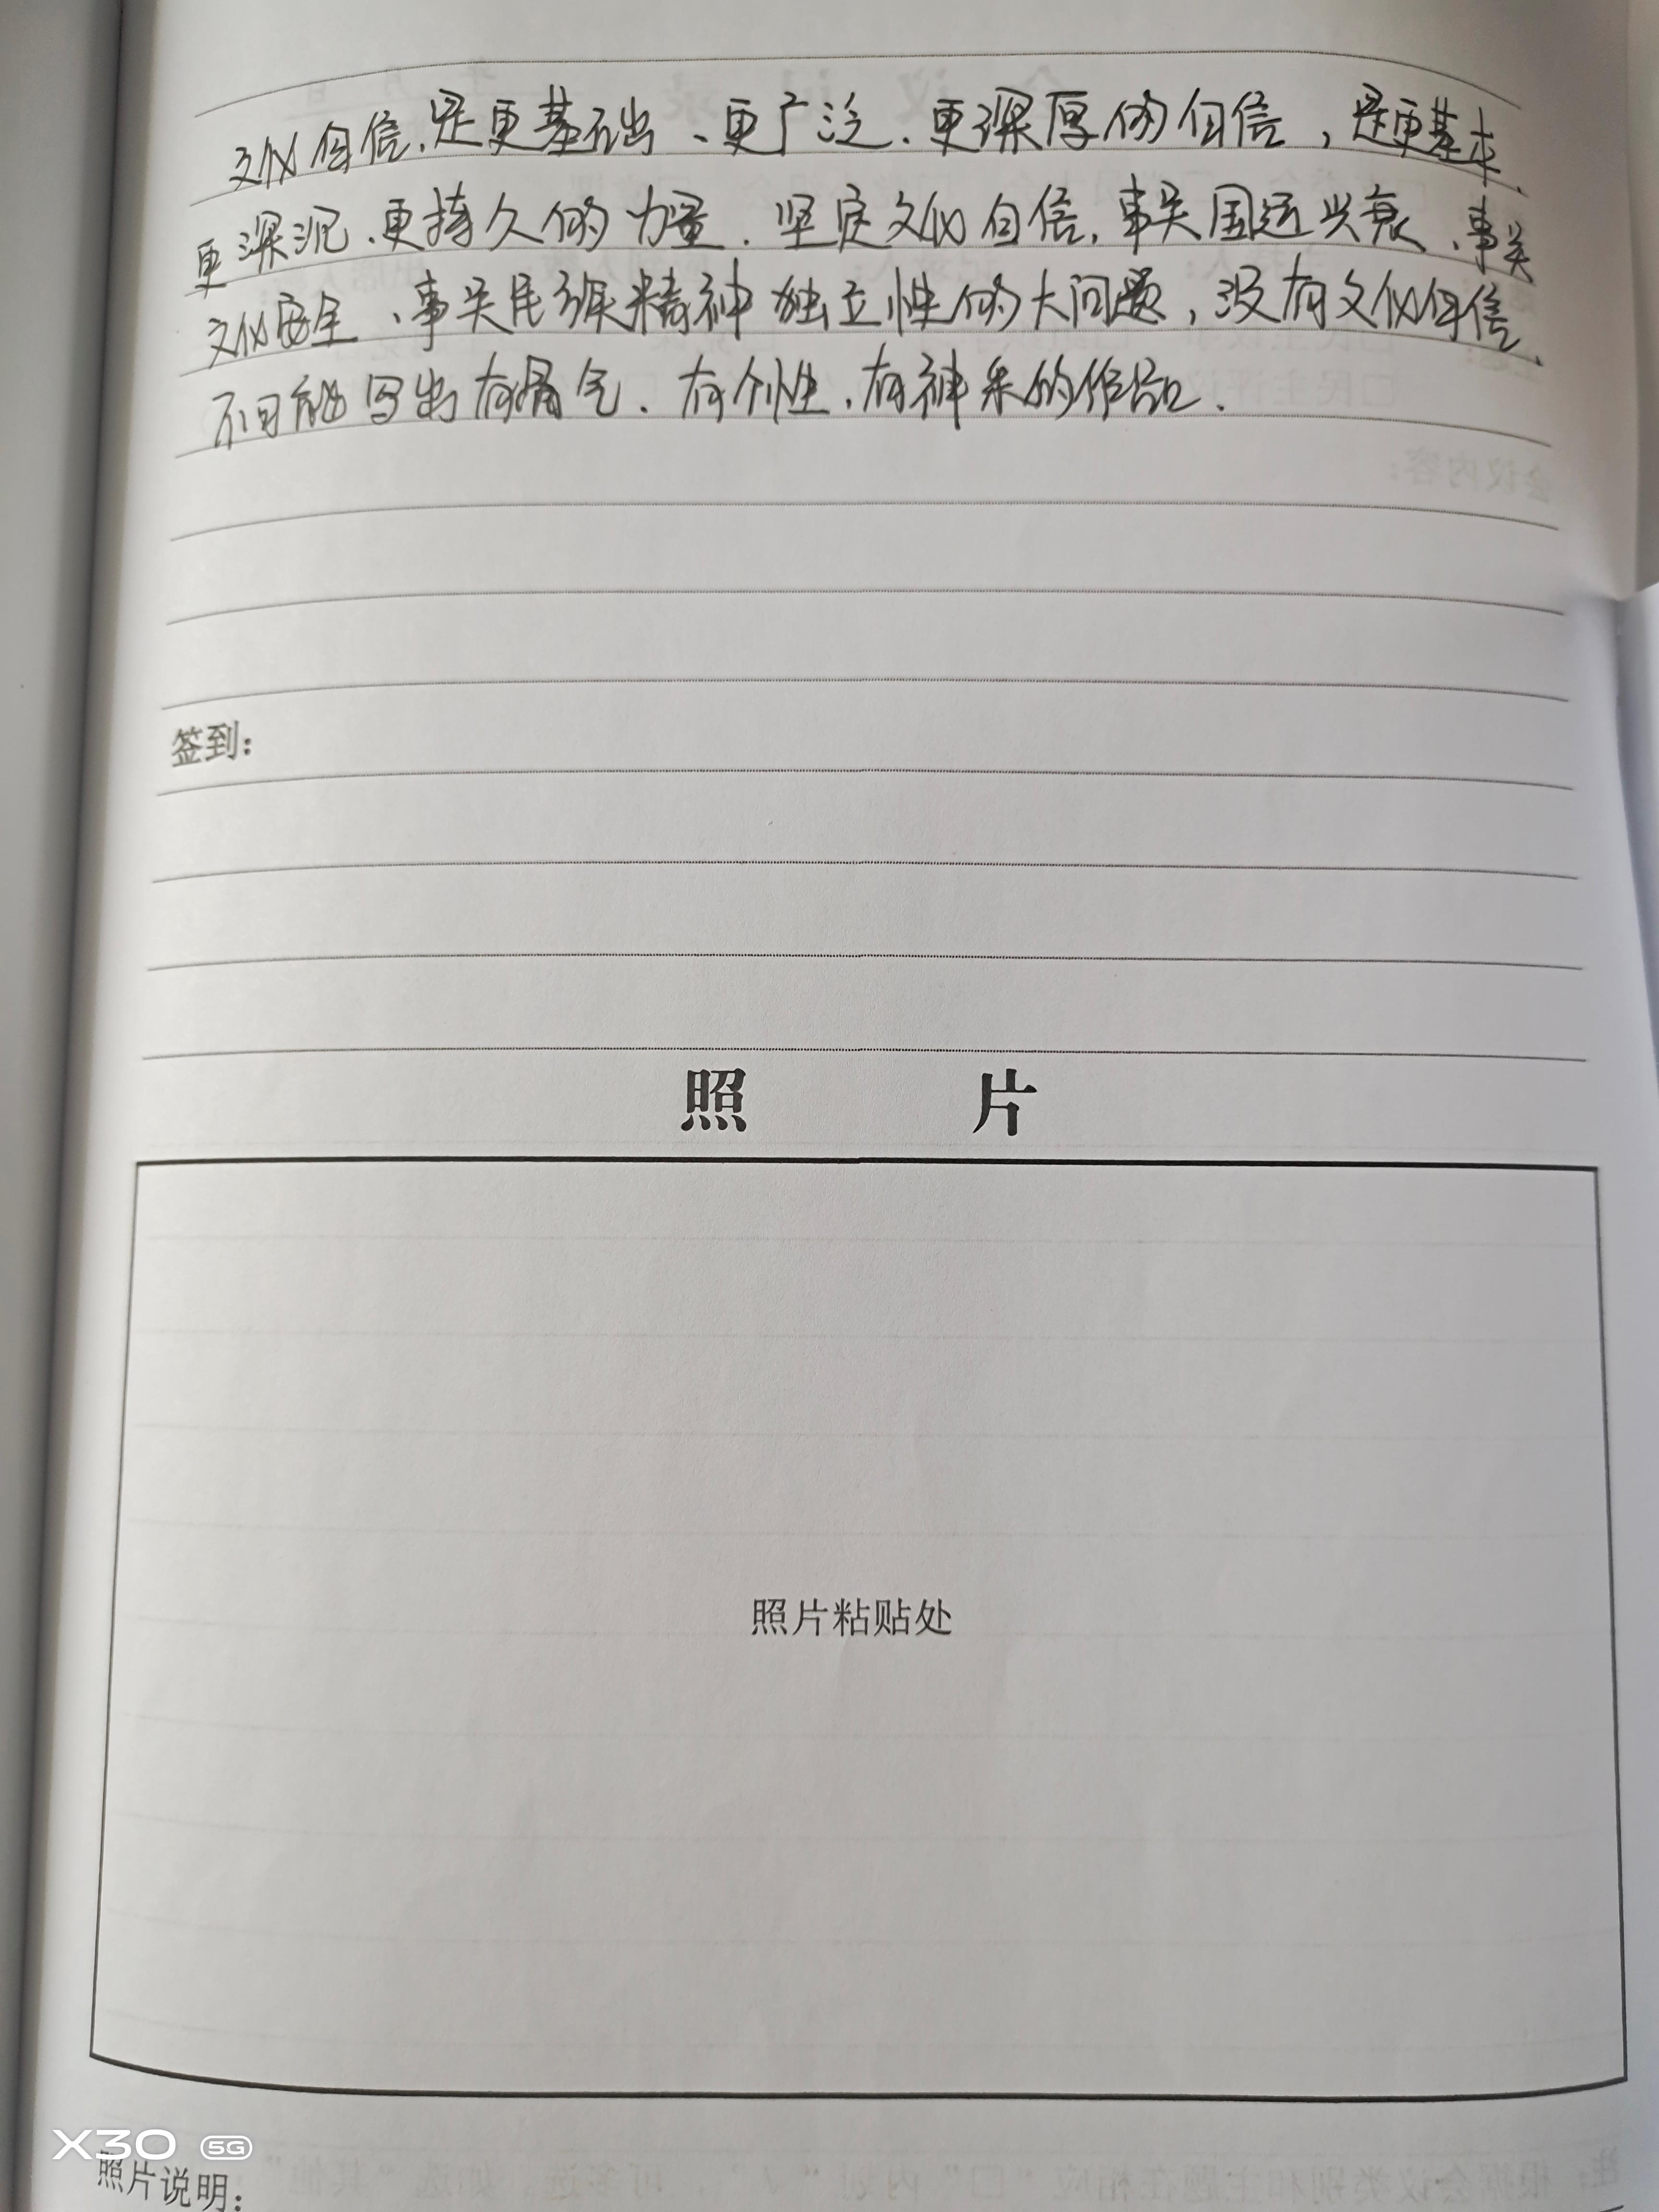 文化自信,是更基础、更广泛、更深厚的自信,是更基本、
更深沉、更持久的力量. 坚定文化自信,事关国运兴衰、事关
文化安全、事关民族精神独立性的大问题,没有文化自信、
不可能写出有骨气、有个性、有神采的作品.
签到:
照 片
照片粘贴处
X30 5G
照片说明: